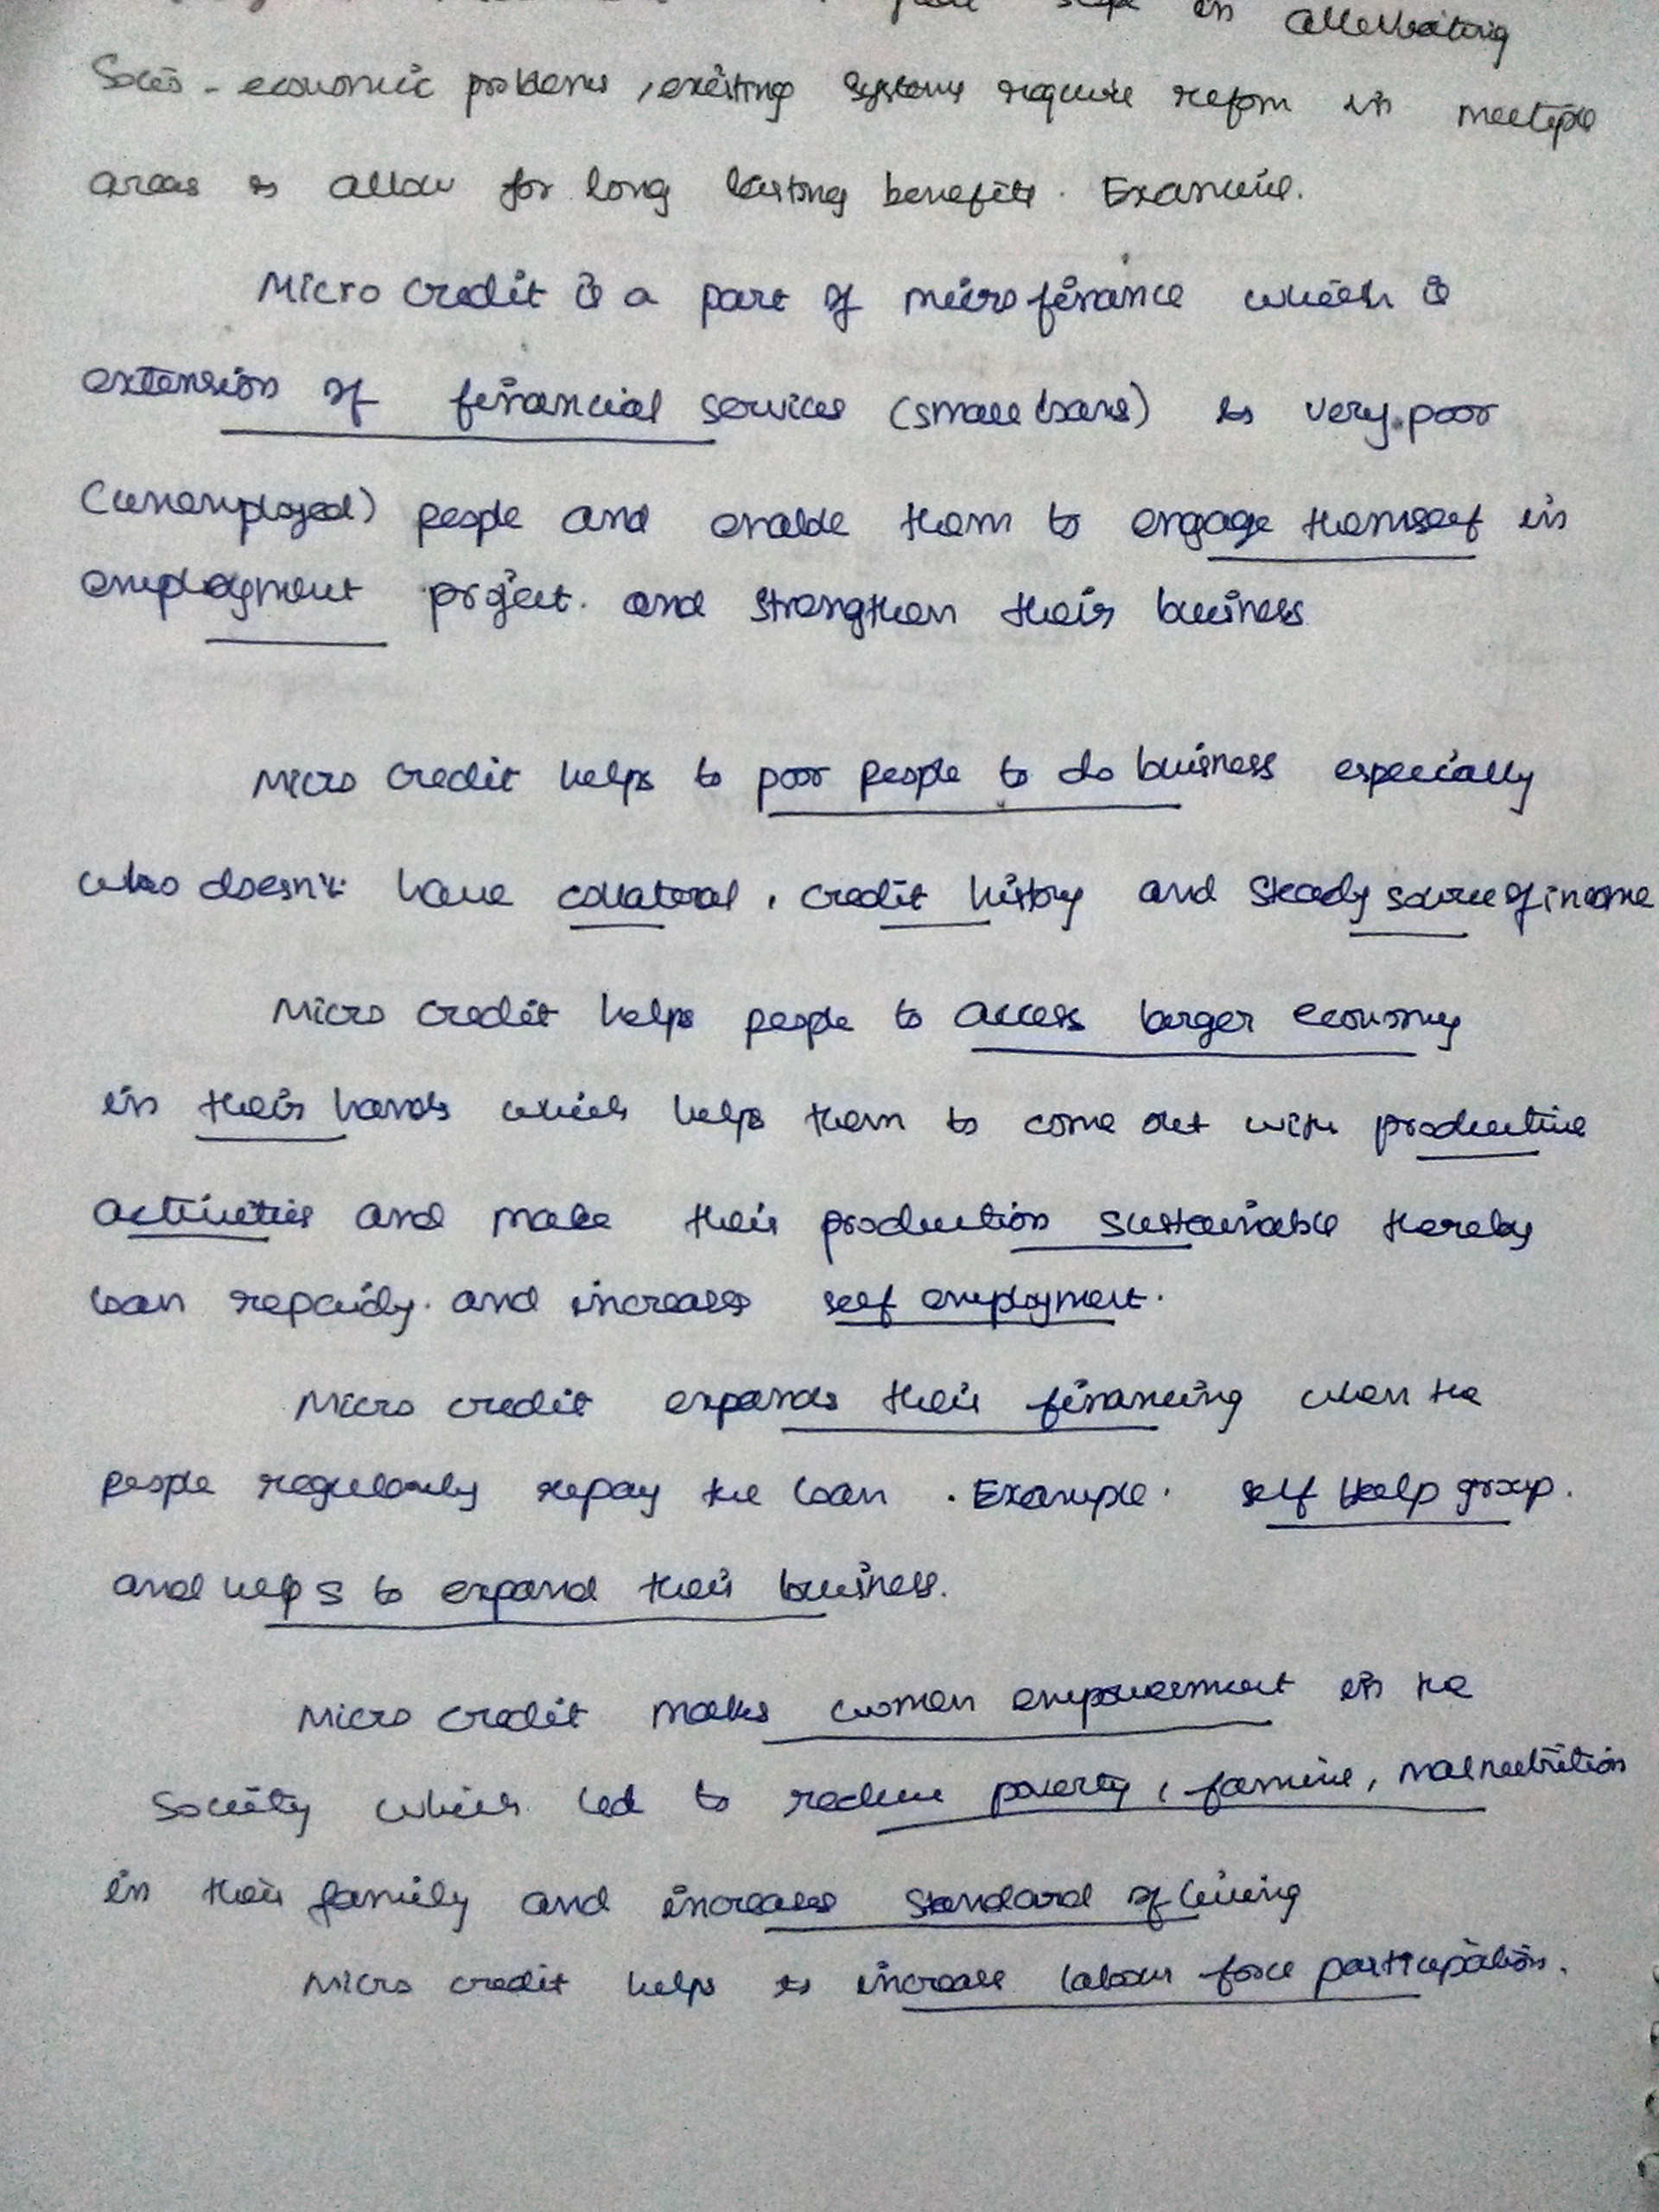 step in alleviating
Socio - economic problems, existing systems require reform in multiple
areas to allow for long lasting benefits. Examine.
Micro credit is a part of micro finance which is
extension of financial services (small loans) to very poor
(unemployed) people and enable them to engage themself in
employment project. and strengthen their business
Micro credit helps to poor people to do business especially
who doesn't have collateral, credit history and steady source of income
Micro credit helps people to access larger economy
in their hands which helps them to come out with productive
activities and make their production sustainable thereby
loan repaidy. and increases self employment.
Micro credit expands their financing when the
people regularly repay the loan. Example. self help group.
and helps to expand their business.
Micro credit makes women empowerment in the
society which led to reduce poverty, famine, malnutrition
in their family and increases standard of living
Micro credit helps to increase labour force participation.